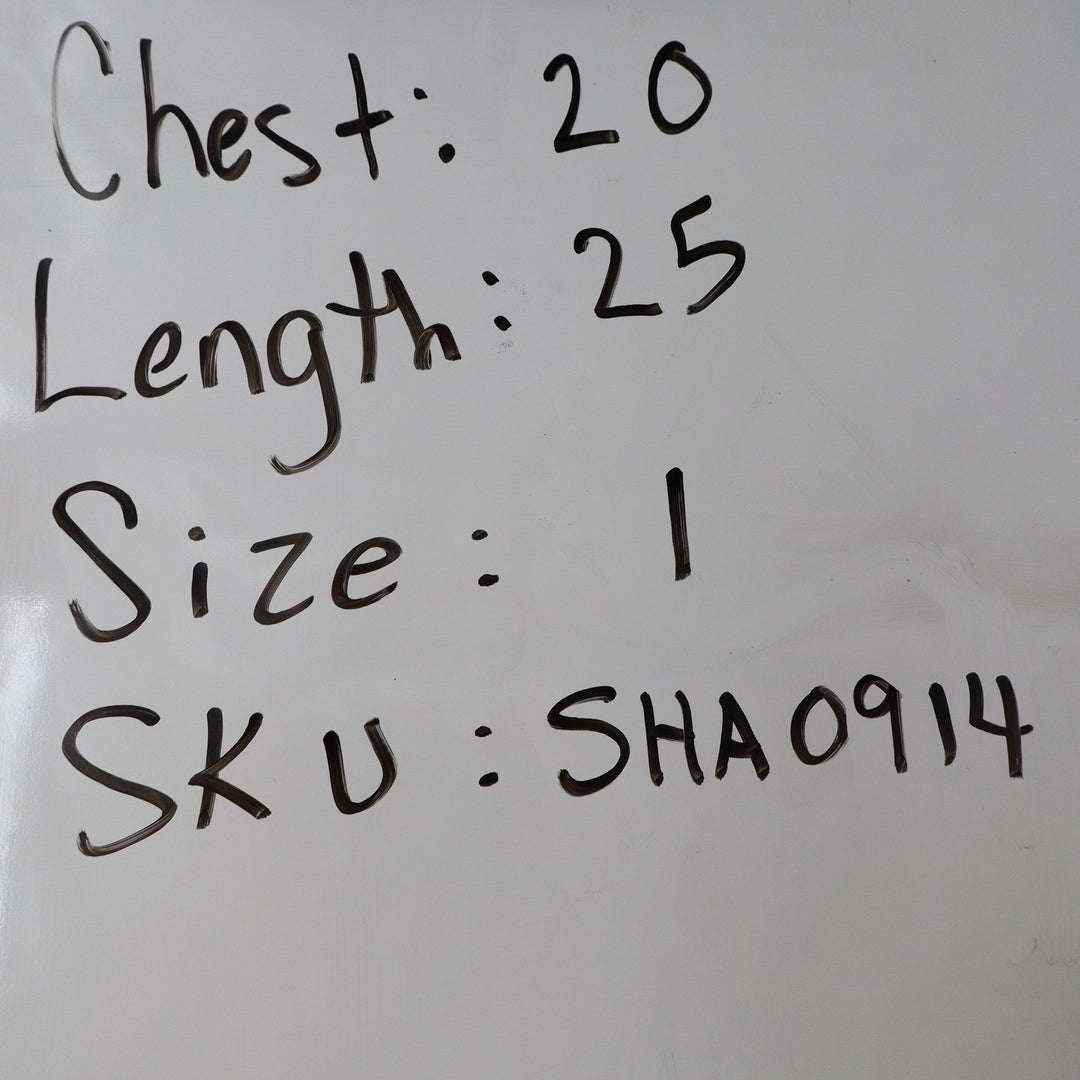 Chest: 20
Length: 25
Size: 1
SKU: SHA0914